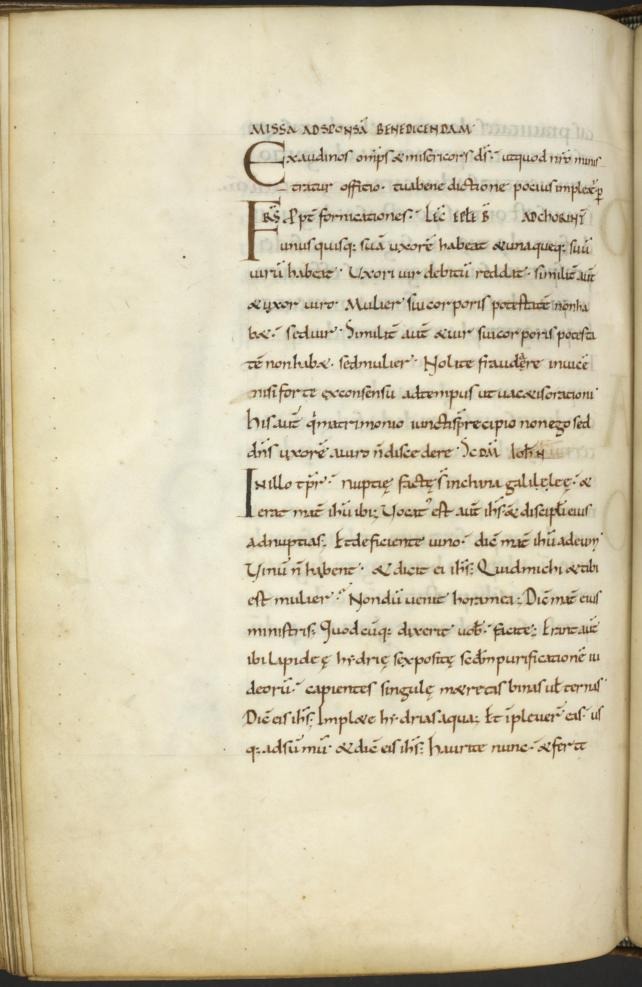 MISSA AD SPONSĀ BENEDICENDAM
Exaudi nos omp̄s & misericors ds̄. ut quod nr̄o minis
tratur officio. tua benedictione pocius impleat̄ p̄
FRS̄ Ppt̄ fornicationes. LEC̄ EPLE B AD CHORINT̄
unus quisq; suā uxorē habeat & unaqueq; suū
uirū habeat. Uxori uir debitū reddat. similit̄ aut̄
& uxor uiro. Mulier sui corporis potestatē non ha
b&. sed uir. Similit̄ aut̄ & uir sui corporis potesta
tē non hab&. sed mulier. Nolite fraudare inuicē
nisi forte ex consensu ad tempus ut uac&is orationi
His aut̄ q̄ matrimonio iuncti s̄ precipio non ego sed
dn̄s uxorē a uiro n̄ discedere. SCDM̄ IOH̄N
In illo tp̄r. nuptię factę s̄ in china galilęę. &
erat mat̄ ih̄u ibi; Uocat' est aut̄ ih̄s. & discipl̄i eius
ad nuptias; Et deficiente uino. dic̄ mat̄ ih̄u ad eum
Uinū n̄ habent. & dicit ei ih̄s; Quid michi & tibi
est mulier? Nondū uenit hora mea; Dic̄ mat̄ eius
ministris; Quodcūq; dixerit uob̄. facite; Erant aut̄
ibi lapideę hydrię sex positę scd̄m purificationē iu
deorū. capientes singulę m&retas binas uł ternas
Dic̄ eis ih̄s; Impl&e hydrias aqua; Et īpleuer̄ eas. us
q; ad sūmū. & dic̄ eis ih̄s; haurite nunc. & ferte